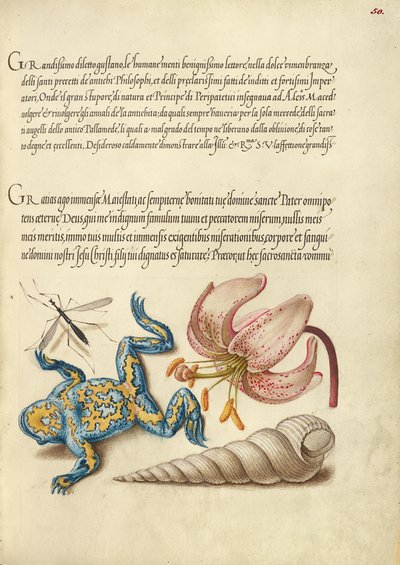 50.
GRandissimo diletto gustano, le humane menti benignissimo lettore, nella dolce rimenbranza
delli santi precetti de antichi Philosophi, et delli preclarissimi fatti de inditti et fortisimi Imper
atori, Onde il gran stupore, di natura et Principe di Peripatetici insegnaua ad Aless. Maced
volgere & riuolgere gli annali de la antichita: da quali sempre haueria per la sola mercede, delli sacra
ti augelli dello antico Pallamede, li quali a mal grado del tempo ne liberano dalla obliuione, di cose tan
to degne et excellenti, Desideroso caldamente dimonstrare alla Ill. & R. S. V. l'affettione grandiss
GRatias ago immensæ Maiestati, ac sempiternę bonitati tuę domine sancte Pater omnipo-
tens æternę Deus, qui me indignum famulum tuum et peccatorem miserum, nullis meis
meis meritis, immo tuis multis et immensis exigentibus miserationibus, corpore et sangui-
ne domini nostri Jesu Christi filÿ tui dignatus es saturare; Præcor, ut hęc sacrosancta commu